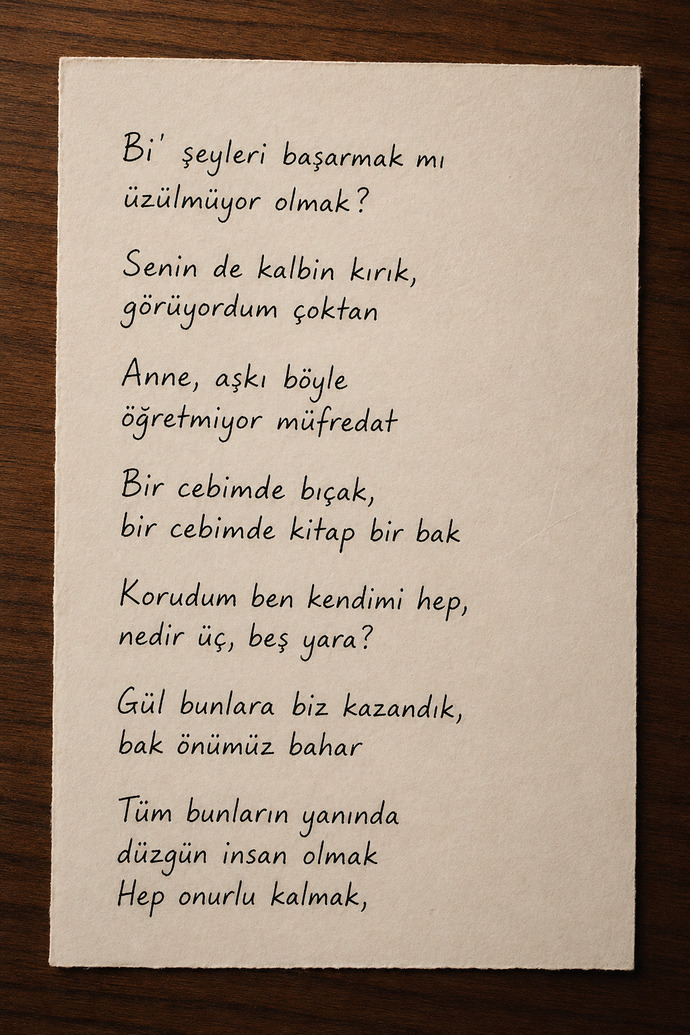 Bi' şeyleri başarmak mı
üzülmüyor olmak?
Senin de kalbin kırık,
görüyordum çoktan
Anne, aşkı böyle
öğretmiyor müfredat
Bir cebimde bıçak,
bir cebimde kitap bir bak
Korudum ben kendimi hep,
nedir üç, beş yara?
Gül bunlara biz kazandık,
bak önümüz bahar
Tüm bunların yanında
düzgün insan olmak
Hep onurlu kalmak,